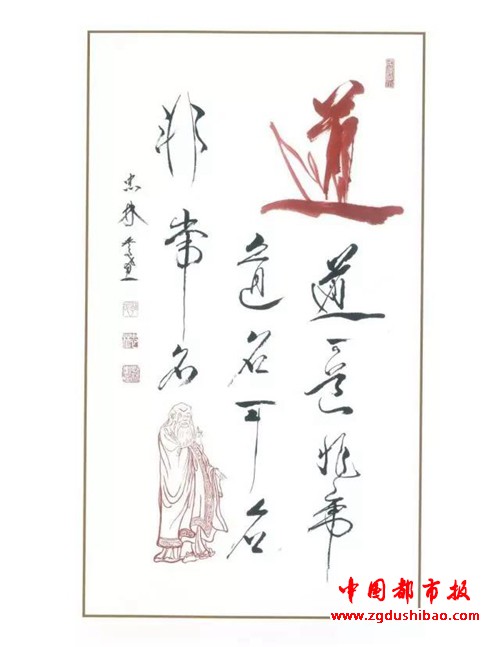 道
道可道非常
道名可名
非常名
中国都市报
www.zgdushibao.com